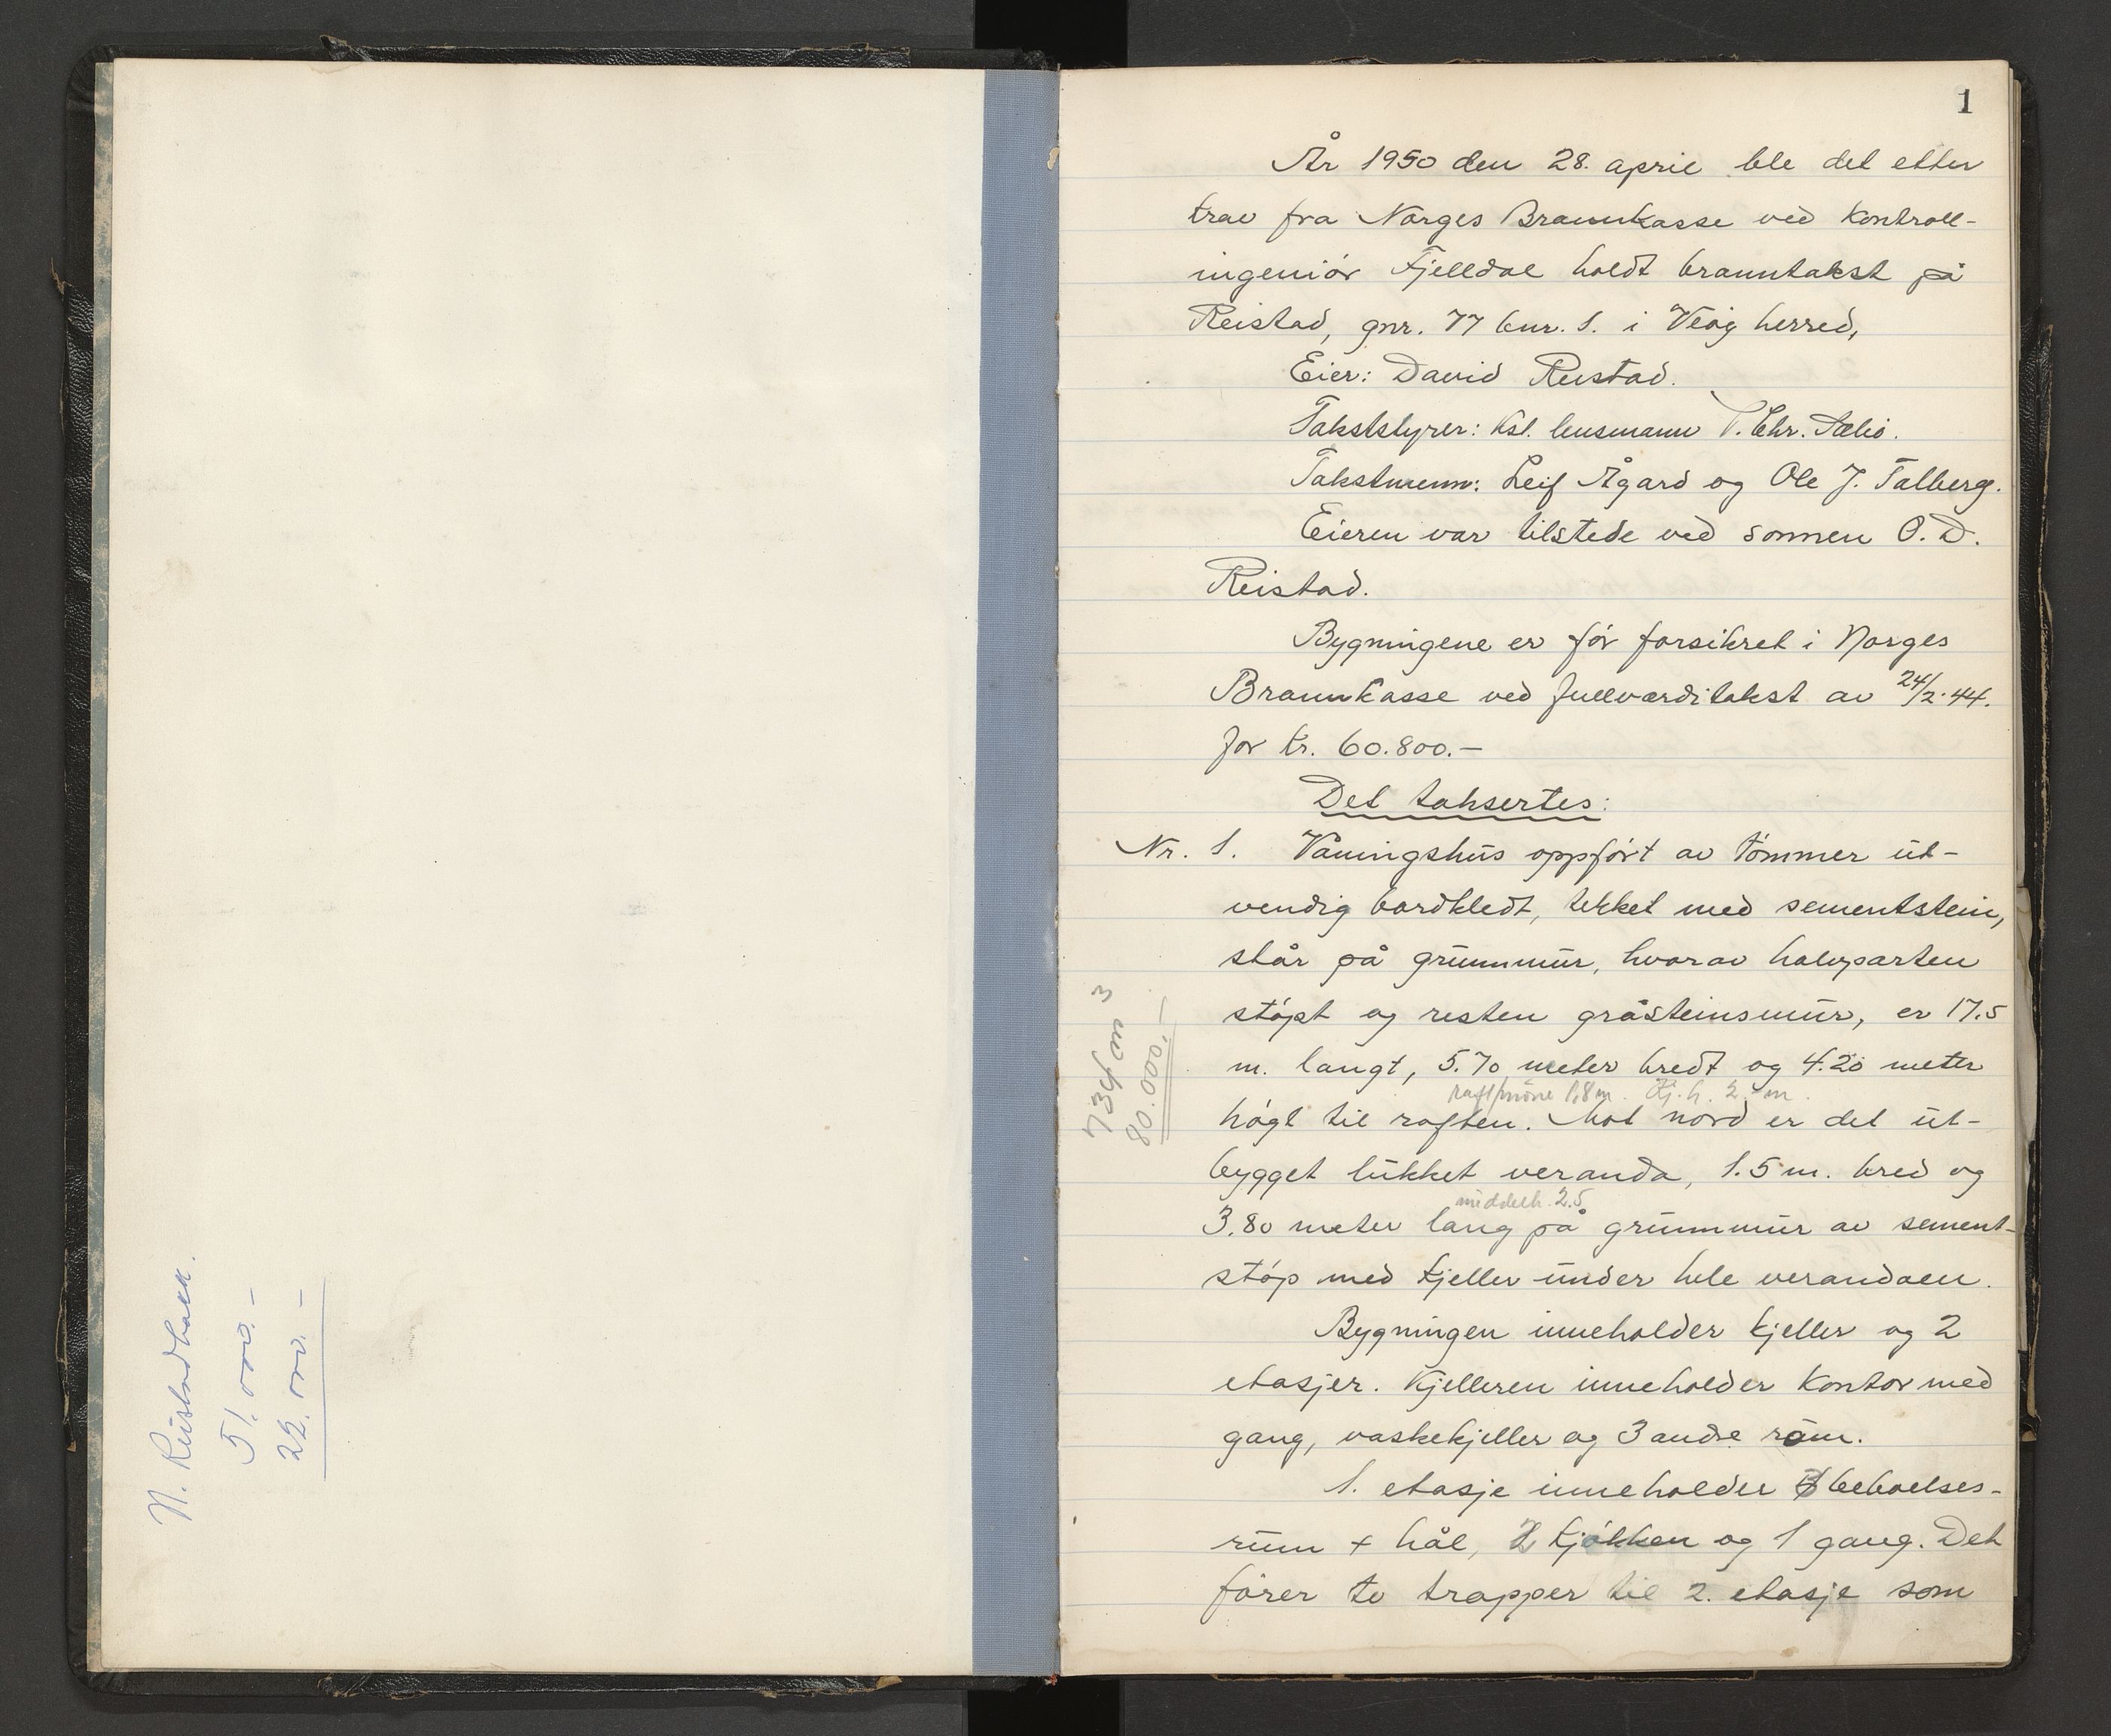 N. Reistadbakk.
51.000.-
22.000.-
1
År 1950 den 28. april ble det etter
krav fra Norges Brannkasse ved kontroll-
ingeniør Fjelldal holdt branntakst på
Reistad, gnr. 77 bnr. 1. i Veøy herred,
Eier: David Reistad.
Takststyrer: Kst. lensmann T. Chr.
Takstmenn: Leif Ågård og Ole J. Talberg.
Eieren var tilstede ved sønnen O. D.
Reistad.
Bygningene er før forsikret i Norges
Brannkasse ved fullverditakst av 24/2-44.
for kr. 60.800.-
Det taksertes:
Nr. 1. Våningshus oppført av tømmer ut-
vendig bordkledt, tekket med sementstein,
står på grunnmur, hvorav halvparten
støpt og resten gråsteinsmur, er 17.5
m. langt, 5.70 meter bredt og 4.20 meter
raft/møne 1,8 m. Kj. h. 2.- m.
høgt til raften. Mot nord er det ut-
bygget lukket veranda, 1.5 m. bred og
middelh. 2.5
3.80 meter lang på grunnmur av sement-
støp med kjeller under hele verandaen.
734 m3
80.000.-
Bygningen inneholder kjeller og 2
etasjer. Kjelleren inneholder kontor med
gang, vaskekjeller og 3 andre rom.
1. etasje inneholder beboelses-
rum + hål, 2 kjøkken og 1 gang. Det
fører to trapper til 2. etasje som